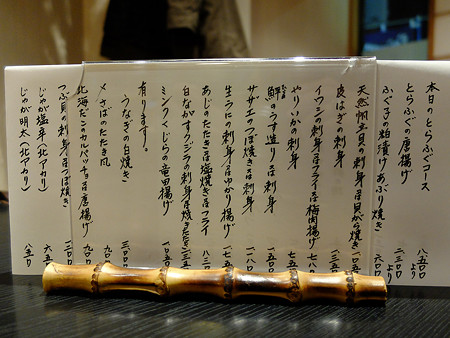 本日のとらふぐコース 八五〇〇より
とらふぐの唐揚げ 二三〇〇より
ふぐ子の粕漬けあぶり焼き 六〇〇
天然帆立貝の刺身又は貝から焼き 一〇五〇
皮はぎの刺身
イワシの刺身又はフライ又は梅肉揚げ 七八〇
やりいかの刺身
鮃のうす造り又は刺身 一五〇〇
サザエのつぼ焼き又は刺身 一一八〇
生うにの刺身又はゆかり揚げ 一七五〇
白ながすクジラの刺身又は焼きたたき
あじのたたき又は塩焼き又はフライ 八三〇
ミンクくじらの竜田揚げ
有ります。
うなぎの白焼き 三〇〇〇
〆さばのたたき風 九〇〇
北海だこのカルパッチョ又は唐揚げ 九〇〇
つぶ貝の刺身又はつぼ焼き 一二〇〇
じゃが塩辛(北アカリ) 六五〇
じゃが明太(北アカリ) 八五〇